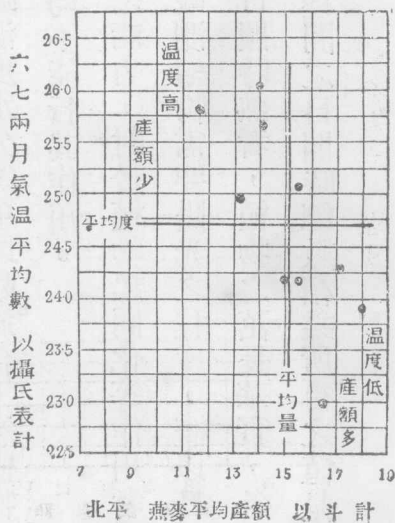 六七兩月氣溫平均數 以攝氏表計
26·5
26·0
25·5
25·0
24·5
24·0
23·5
23·0
22·5
溫度高
產額少
平均度
平均量
溫度低
產額多
7 9 11 13 15 17 19
北平 燕麥平均產額 以斗計